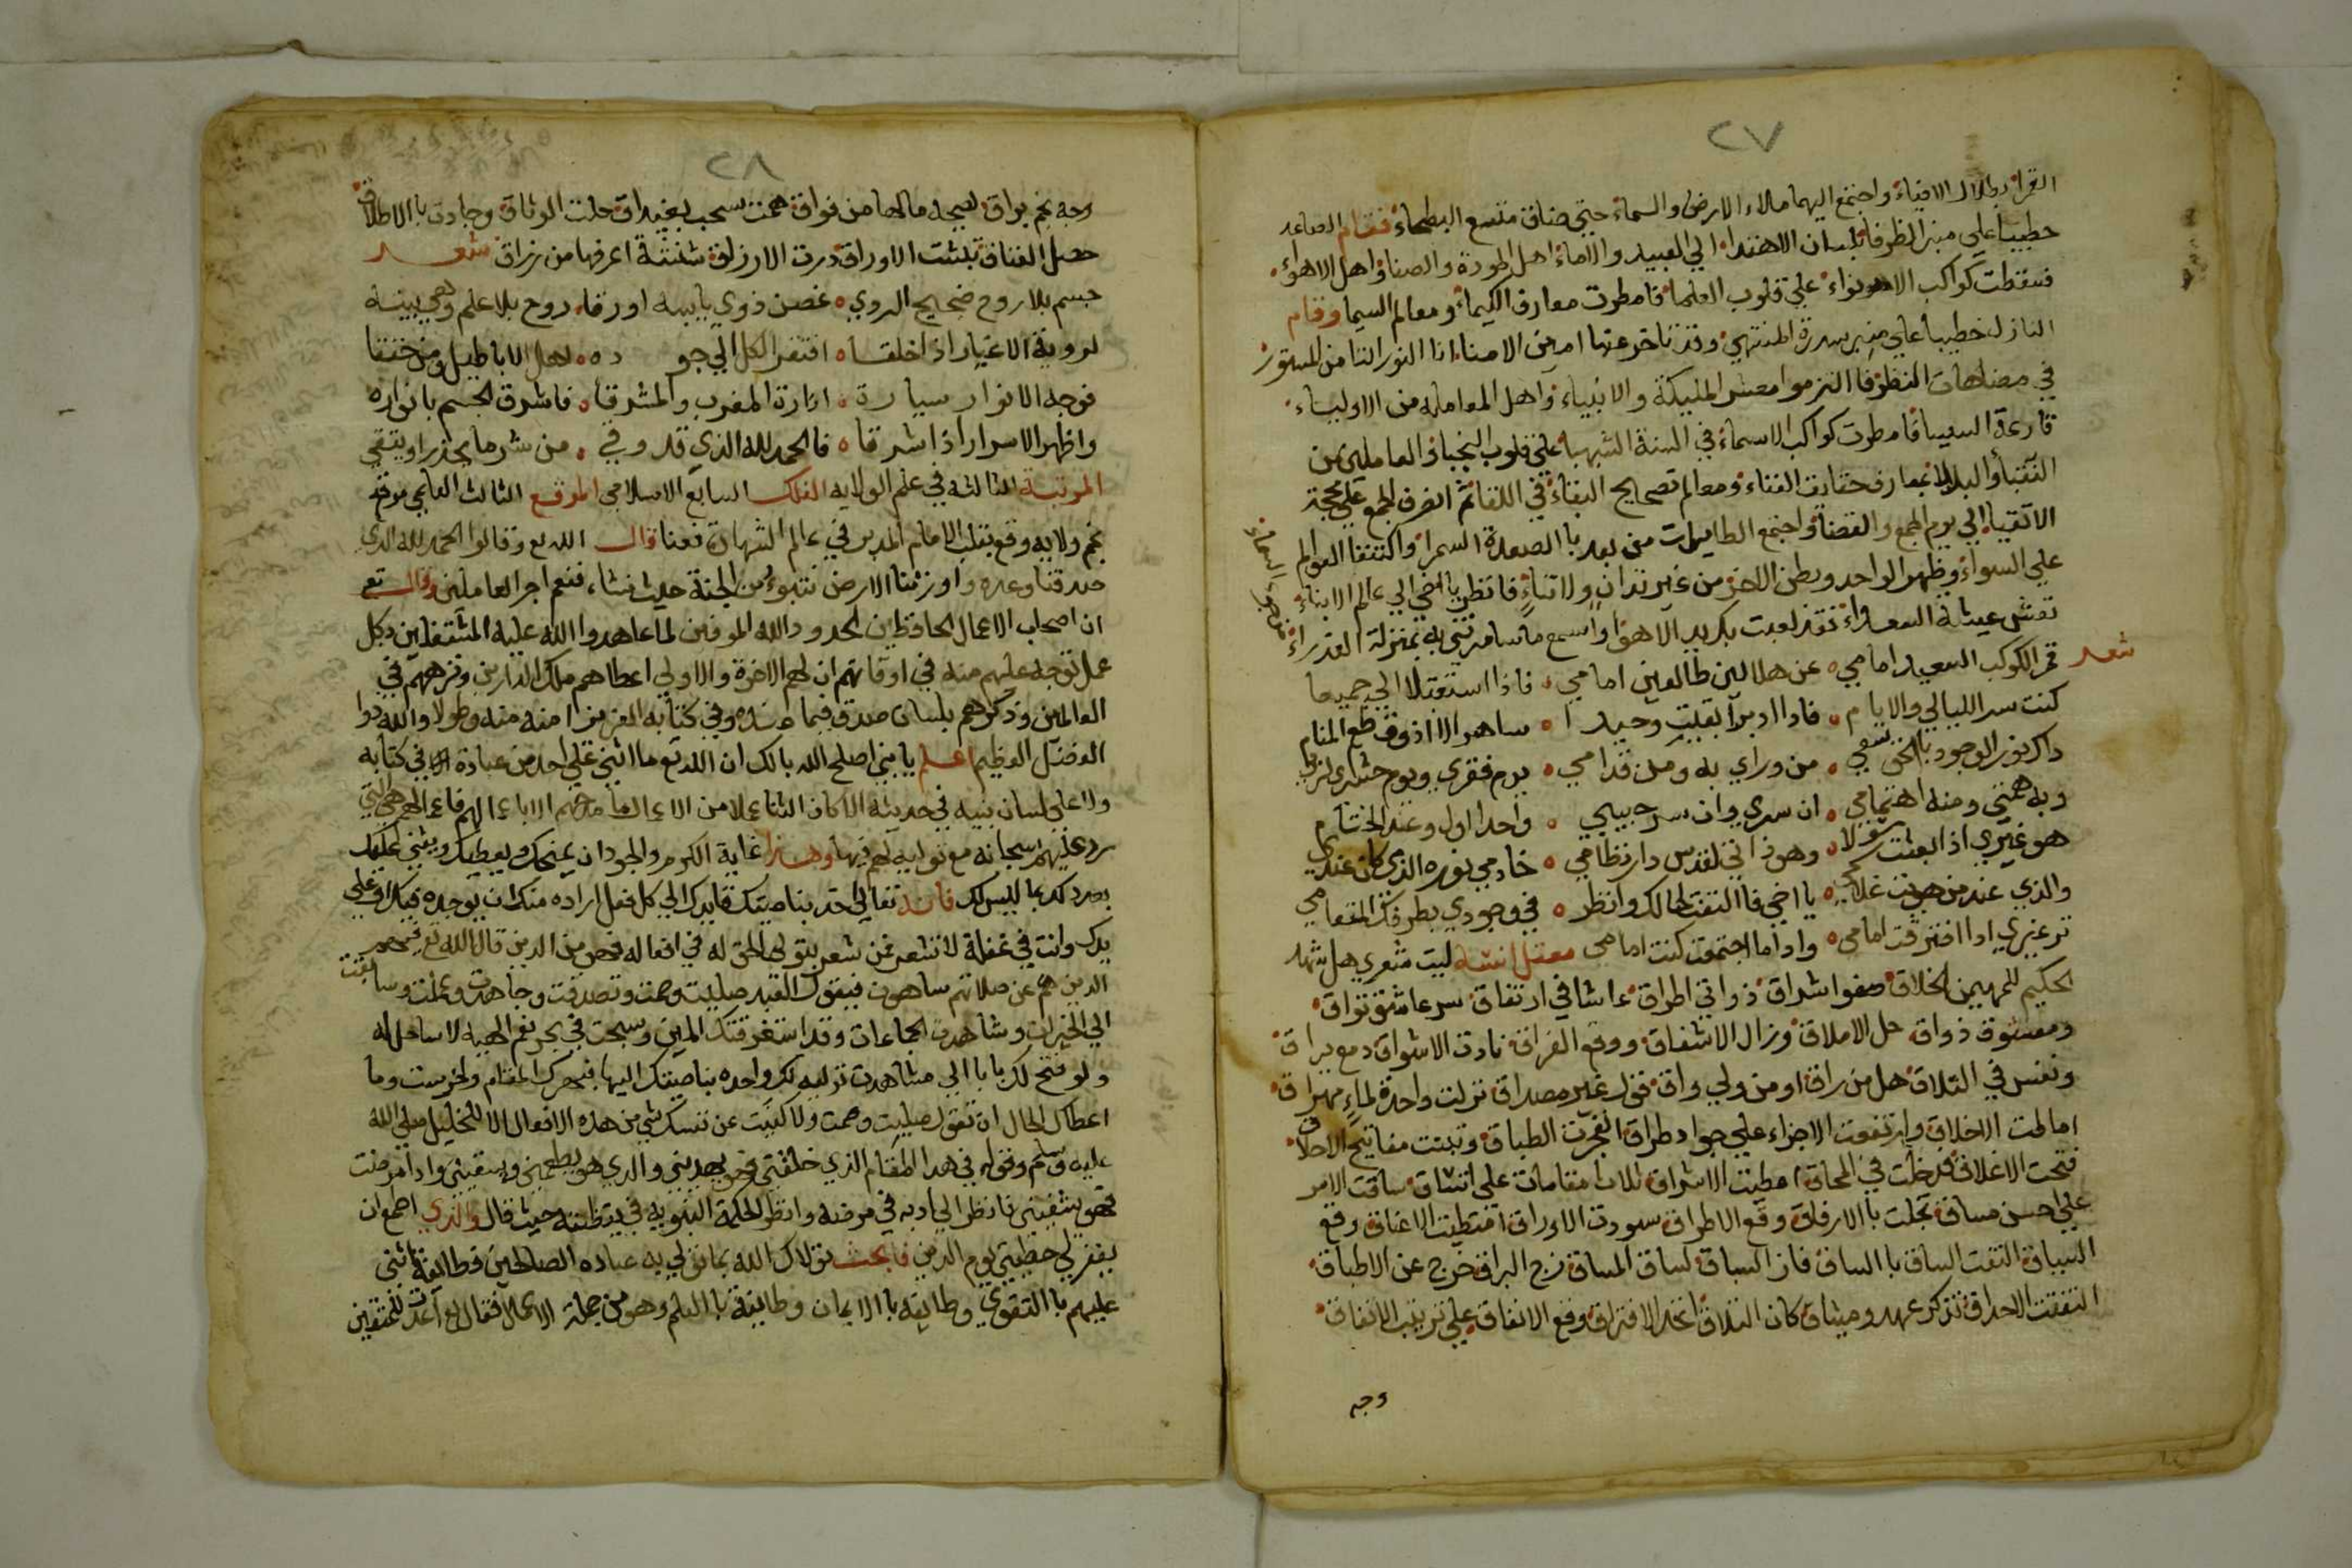 ٢٧
القرا بظلال الافياء واجتمع اليهما ملاء الارض والسماء حتي ضاق متسع البطحاء فقام الصاعد
خطيبا علي منبر الظرفا بلسان الاهتدا الي العبيد والاماء اهل المودة والصفا واهل الاهواء
فسقطت كواكب الانواء علي قلوب العلما فامطرت معارف الكيمياء ومعالم السيميا وقام
النازل خطيبا علي منبر سدرة المنتهي وقد تاخر عنها امين الامنا انا النور التامن المستور
في مضاهات النظر فالتزموا معشر المليكة والانبياء واهل المعامله من الاولياء
قارعة السيسا فامطرت كواكب الاسماء في السنة الشهبا علي قلوب النجباء والعاملين من
النقبا والبدلا بمعارف حقايق الفناء ومعالم تصحيح البقاء في اللقا ثم انصرف الجمع علي محجة
الاتقيا الي يوم الجمع والقضا واجتمع الطايرات من بعد بالصعدة السمرا واكتنفا العوالم
علي السواء وظهر الواحد وبطن الاخر من غير تدان ولا تناء فانظر يا اخي الي عالم الابناء
تعش عيشة السعداء فقد لعبت بك يد الاهوا واسمع ما سامرتني به بمنزلة العذراء
شعر قمر الكوكب السعيد امامي عن هلالين طالعين امامي فاذا استقبلا الي جميعا
كنت سر الليالي والايام فاذا ادبرا بقيت وحيدا ساهرا لا اذوق طعم المنام
ذاك نور الوجود بالحق يسعي من وراي به ومن قدامي يوم فقري ويوم حشري لربي
وبه همتي ومنه اهتمامي ان سري وان سر حبيبي واحدا اول وعند الختام
هو غيري اذا بعثت رسولا وهو ذاتي لقدس دار نظامي خادمي نوره الذي كان عندي
والذي عنده من هويت غلامي يا اخي فالتفت لحالك وانظر في وجودي بطرفك المتعامي
تر غيري اذا افترقت امامي واذا ما اجتمعت كنت امامي معقل انسه ليت شعري هل شهد
الحكيم المهيمن الخلاق صفو اشراق ذواتي اطراق عاشا في ارتفاق سر عاشق تواق
ومعشوق ذواق حل الاملاق وزال الاشفاق ووقع الفراق نادت الاشواق دمع يراق
ونفس في التلاق هل من راق او من ولي واق فتى غير مصداق نزلت واحدة لماء مهراق
امالت الاخلاق وارتفعت الاجزاء علي جواد طراق انفجرت الطباق وتبينت مفاتيح الاخلاق
فتحت الاغلاق فدخلت في المحاق اعطيت الاشراق ثلاث مقامات علي اتساق ساقت الامر
علي احسن مساق تجلت بالارفاق وقع الاطراق سودت الاوراق امتطيت الاعناق رفع
السباق التفت الساق بالساق فاز السباق لساق المساق زج البراق خرج عن الاطباق
التفتت الاحداق تذكر عهد وميثاق كان التلاق اتحد الافتراق وقع الاتفاق علي ترتيب الانفاق
وجه
٢٨
وجه نجم براق لصيحه مالها من فواق همت سحب بغيداق حلت الوثاق وجادت بالاطلاق
حصل العناق بليت الاوراق درت الارزاق شنشنة اعرفها من رزاق شعر
جسم بلا روح ضجيج الردي غصن ذوي يا ليته اورقا روح بلا علم وهي بيته
لرويه الاغيار اذ اخلقا افتقر الكل الي جوده اهل الاباطيل ومن حققا
فوجه الانوار سيارة انارة المغرب والمشرقا فاشرق الجسم بانواره
واظهر الاسرار اذ اشرقا فالحمد لله الذي قد وفي من شر ما يحذر او يتقي
المرتبة الثالثه في علم الولايه الفلك السابع الاسلامي الموقع الثالث العلمي موقع
نجم ولايه وقع بقلب الامام المدبر في عالم الشهادة فعنا قال الله تع وقالوا الحمد لله الذي
صدقنا وعده واورثنا الارض نتبوء من الجنة حيث نشاء فنعم اجر العاملين وقال تع
ان اصحاب الاعمال الحافظين لحدود الله الموفين لما عاهدوا الله عليه المشتغلين بكل
عمل توجه عليهم منه في اوقاتهم ان لهم الاخرة والاولي اعطاهم ملك الدارين ونزههم في
العالمين وذكرهم بلسان صدق فيما عنده وفي كتابه العزيز امنه منه وطولا والله ذوا
الفضل العظيم اعلم يا بني اصلح الله بالك ان الله تع ما اثني علي احد من عباده في كتابه
ولا علي لسان نبيه في حديثه الا كان الثنا عملا من الاعمال ما مدحهم الا باعمالهم فاعمالهم هي التي
رد عليهم سبحانه مع توليه لهم فيها وهذا غاية الكرم والجود ان يمنحك ويعطيك ويثني عليك
بعد ذلك بما ليس لك فانه تعالي اخذ بناصيتك قايدك الي كل فعل اراده منك ان يوجده فيك او علي
يدك وانت في غفلة لا تشعر فمن شعر بتولي الحق له في افعاله فهو من الذين قال الله تع فيهم
الذين هم عن صلاتهم ساهون فيقول العبد صليت وصمت وتصدقت وجاهدت وعملت وسابقت
الي الخيرات وشاهدت الجماعات وقد استغرقتك المنن وسبحت في بحر نعم الهيه لا ساحل له
ولو فتح لك بابا الي مشاهدت توليه لك واخده بناصيتك اليها فبهرك المقام ولخرست وما
اعطاك الحال ان تقول صليت وصمت ولا كنيت عن نفسك بشي من هذه الافعال الا للخليل صلي الله
عليه وسلم وقوله في هذا المقام الذي خلقني فهو يهديني والذي هو يطعمني ويسقيني واذا مرضت
فهو يشفيني فانظر الي ادبه في مرضه وانظر الحكمة النبويه في يقظته حيث قال والذي اطمع ان
يغفر لي خطيتي يوم الدين فابحث تولاك الله بما تولي به عباده الصالحين فطايفة اثني
عليهم بالتقوي وطايفه بالايمان وطايفة بالعلم وهو من جملة الاعمال فقال تع اعدت للمتقين